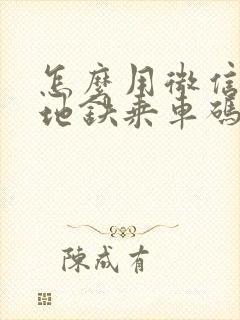 怎麼用微信
地鐵乘車碼
陳成有